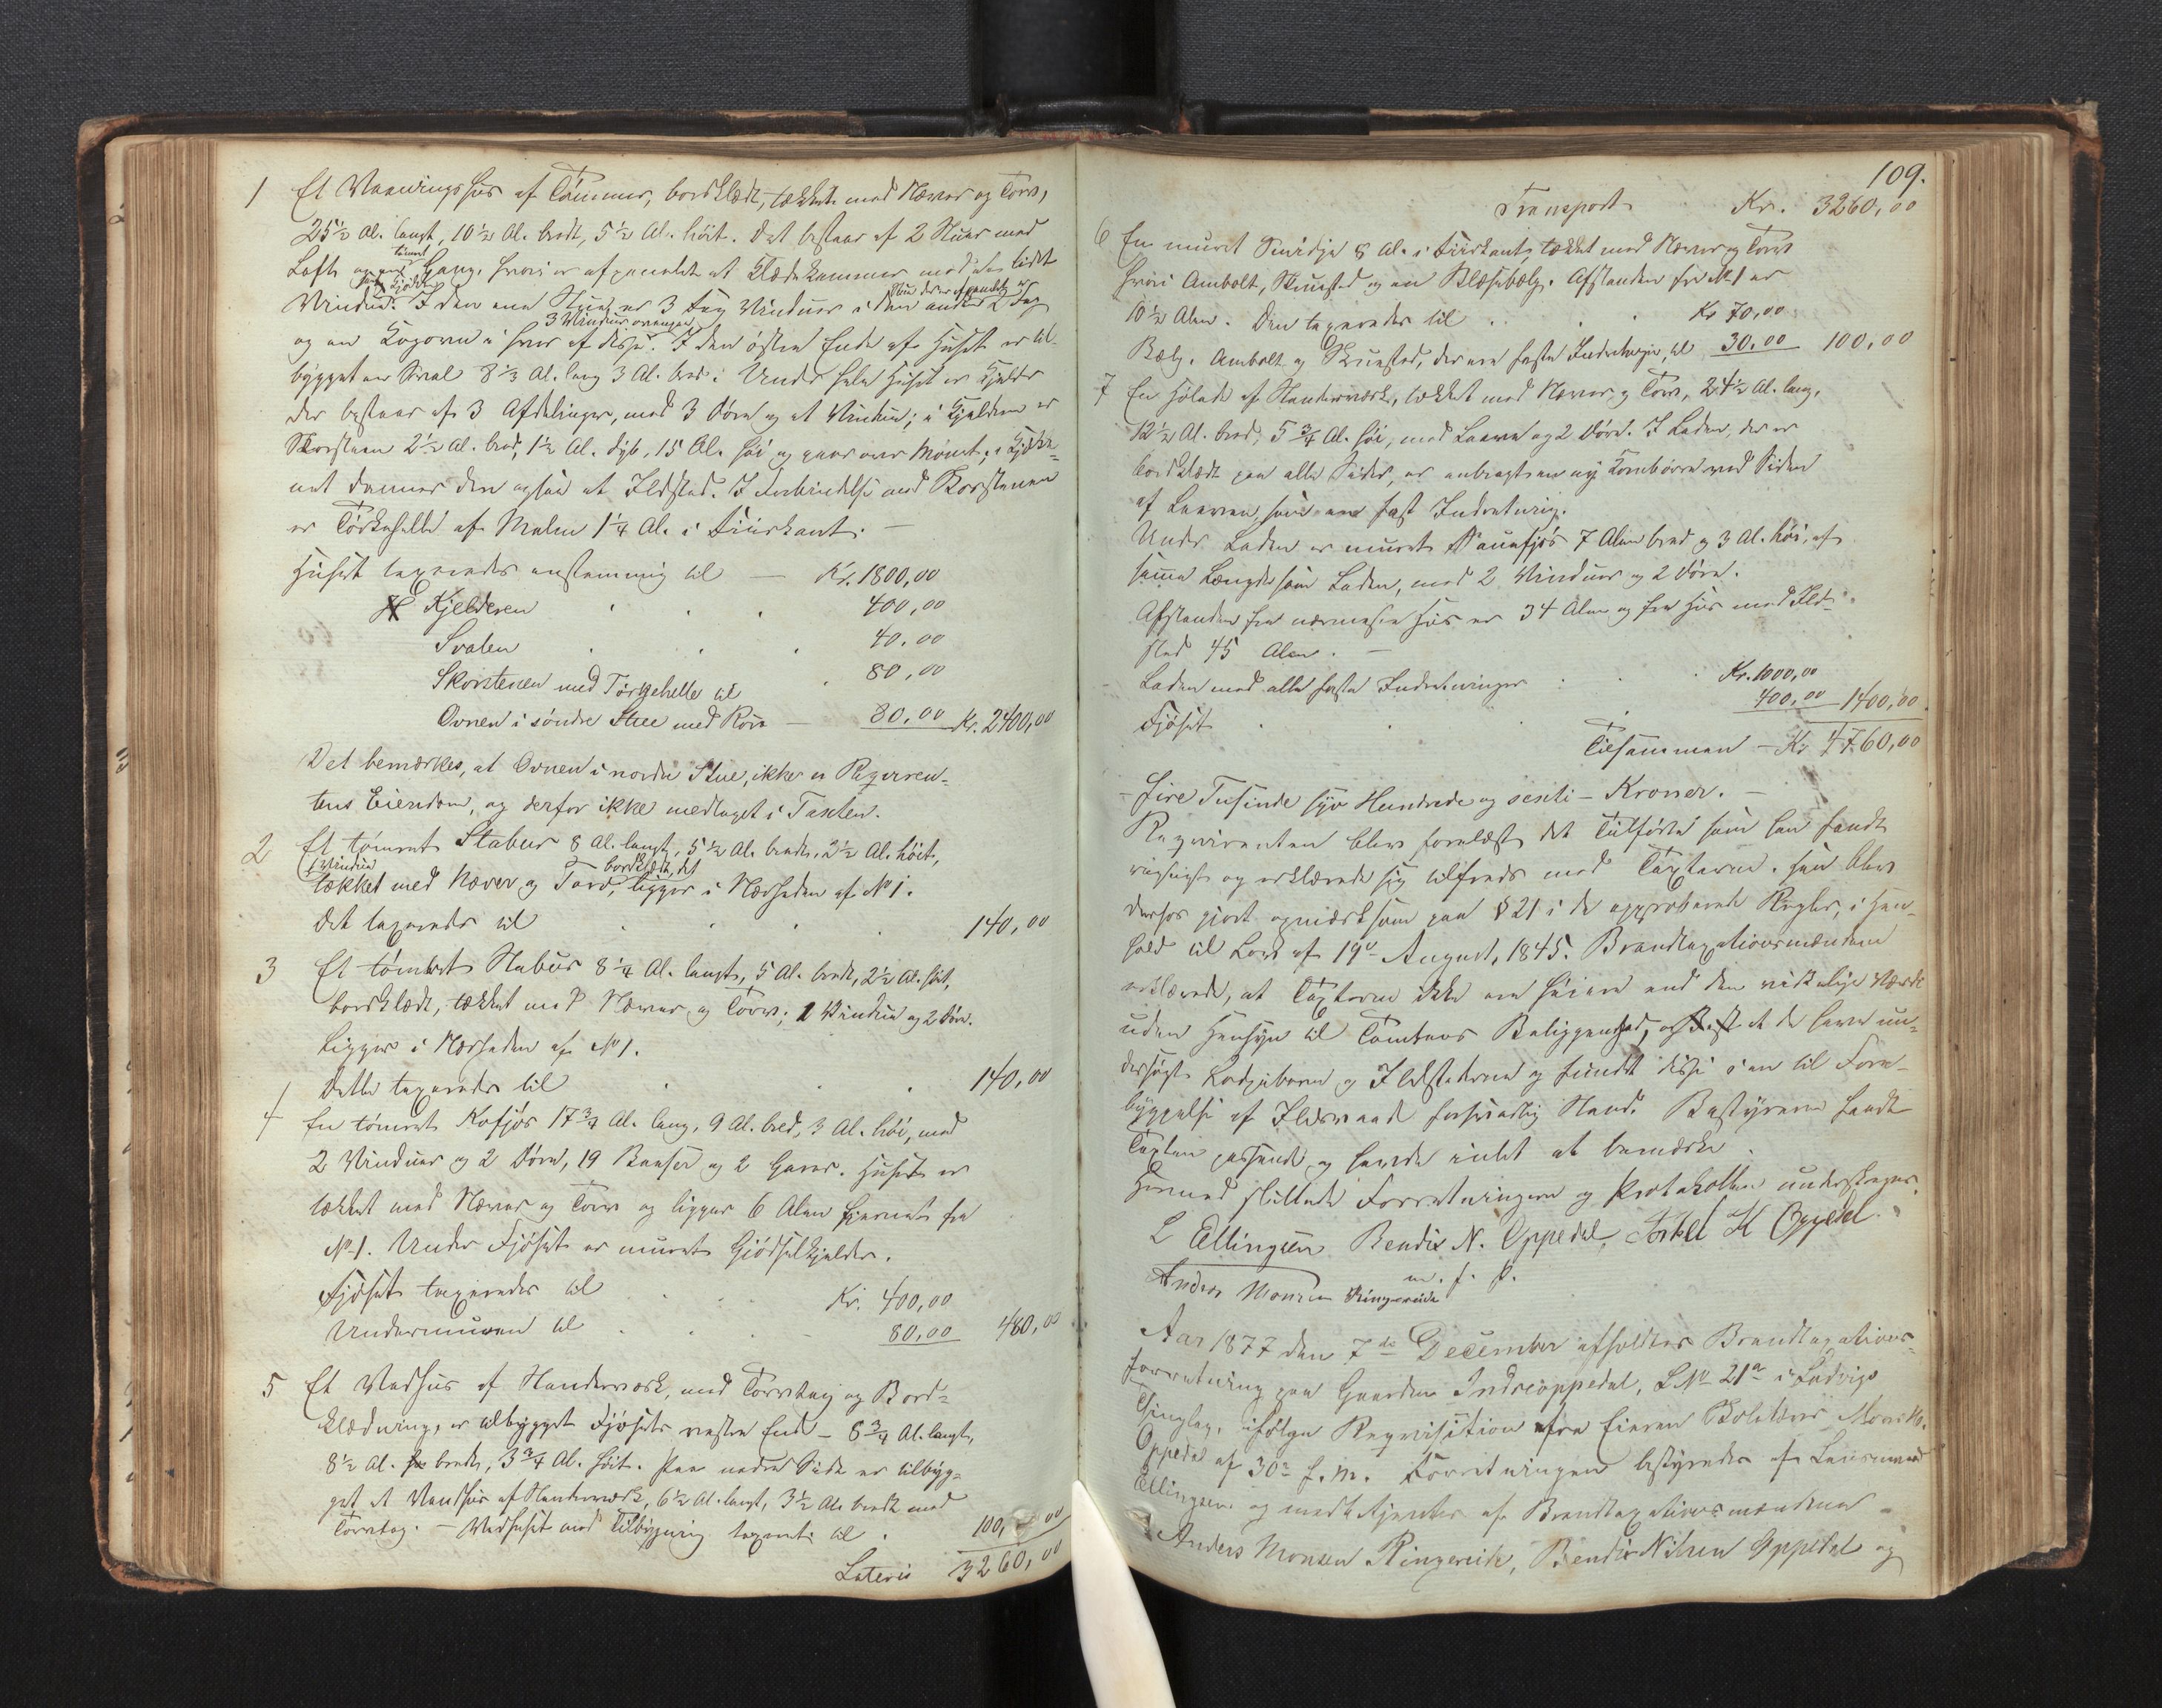 1 Et Vaaningshus af Tømmer, bordklædt, tækket med Næver og Torv,
25½ Al. langt, 10½ Al. bredt, 5½ Al. höit. Det bestaar af 2 Stuer med
Loft og en tömret Gang, hvori er afpanelet et Klædekammer med et lidet
Vindue. I den ene Stue er 3 Fag Vinduer i den anden 2 Fag
3 Vinduer
og en Kogovn i hver af disse. I den östre Ende af Huset er til-
bygget en Sval 8⅓ Al. lang 3 Al. bred. Under hele Huset er Kjelder
der bestaar af 3 Afdelinger, med 3 Döre og et Vindue; i Kjelderen er
Skorsteen 2½ Al. bred, 1½ Al. dyb, 15 Al. höi og gaar over Mönet; i Kjökke-
net danner den ogsaa et Ildsted. I Forbindelse med Skorstenen
er Törkehelle af Malm 1¼ Al. i Fiirkant. —
Huset taxeredes enstemmig til — Kr. 1800,00
Kjelderen . . . 400,00
Svalen . . . 40,00
Skorstenen med Törkehelle til . 80,00
Ovnen i söndre Stue med Rör — 80,00 Kr. 2400,00
Det bemærkes, at Ovnen i nordre Stue, ikke er Reqviren-
tens Eiendom, og derfor ikke medtaget i Taxten.
2 Et tömret Stabur 8 Al. langt, 5½ Al. bredt, 2½ Al. höit,
1 Vindue bordklædt, det
tækket med Næver og Torv, ligger i Nærheden af No 1.
Det taxeredes til . . . . 140,00
3 Et tömret Stabur 8¼ Al. langt, 5 Al. bredt, 2½ Al. höit,
bordklædt, tækket med Næver og Torv; 1 Vindue og 2 Döre.
Ligger i Nærheden af No 1.
Dette taxeredes til . . . 140,00
4 En tömret Kofjös 17¾ Al. lang, 9 Al. bred, 3 Al. höi, med
2 Vinduer og 2 Döre, 19 Baaser og 2 Garer. Huset er
tækket med Næver og Torv og ligger 6 Alen fjernet fra
No 1. Under Fjöset er muret Gjödselkjelder.
Fjöset taxeredes til . . Kr. 400,00
Undermuren til . . . 80,00 480,00
5 Et Vedhus af Stenderværk, med Torvtag og Bord-
klædning, er tilbygget Fjösets vestre Ende — 8¾ Al. langt,
8½ Al. bredt, 3¾ Al. höit. Paa nedre Side er tilbyg-
get et Vandhus af Stenderværk, 6½ Al. langt, 3½ Al. bredt med
Torvtag. — Vedhuset med Tilbygning taxeret til . 100,00
Lateris 3260,00
109.
Transport Kr. 3260,00
6 En muret Smidje 8 Al. i Fiirkant, tækket med Næver og Torv
hvori Ambolt, Skruested og en Blæsebælg. Afstanden fra No 1 er
10½ Alen. Den taxeredes til . . . Kr 70,00
Bælg, Ambolt og Skruested, der ere faste Indretninger, til 30.00 100,00
7 En Hölade af Stenderværk, tækket med Næver og Torv, 24½ Al. lang,
12½ Al. bred, 5¾ Al. höi, med Laave og 2 Döre. I Laden, der er
bordklædt paa alle Sider, er anbragt en ny Kornbörre ved Siden
af Laaven, som er fast Indretning.
Under Laden er muret Sauefjös 7 Alen bred og 3 Al. höi, af
samme Længde som Laden, med 2 Vinduer og 2 Döre.
Afstanden fra nærmeste Hus er 34 Alen og fra Hus med Ild-
sted 45 Alen. —
Laden med alle faste Indretninger . . . Kr. 1000,00
Fjöset . . . . 400,00 1400,00
Tilsammen — Kr 4760,00
— Fire Tusinde syv Hundrede og sexti — Kroner. —
Reqvirenten blev forelæst det Tilförte som han fandt
rigtigt og erklærede sig tilfreds med Taxterne. Han blev
derhos gjort opmærksom paa § 21 i de approberede Regler, i Hen-
hold til Lov af 19de August, 1845. Brandtaxationsmændene
erklærede, at Taxterne ikke ere höiere end den virkelige Værdi
uden Hensyn til Tomtens Beliggenhed, at de have un-
dersögt Kodjeberne og Ildstederne og fundet disse i en til Fore-
byggelse af Ildsvaade forsvarlig Stand. Bestyreren fandt
Taxten passende og havde intet at bemærke.
Hermed sluttede Forretningen og Protokollen underskreves.
L Ellingsen Bendix N. Oppedal, Torkel K Oppedal
Anders Monsen Ringereide m. f. P.
Aar 1877 den 7de December afholdtes Brandtaxations-
forretning paa Gaarden Indreoppedal, LNo 21a i Ladvigs
Thinglag, ifölge Reqvisition fra Eieren Mons N.
Oppedal af 30te f. M. Forretningen bestyredes af Lensmand
Ellingsen og medbetjentes af Brandtaxationsmændene —
Anders Monsen Ringereide, Bendix Nilsen Oppedal og